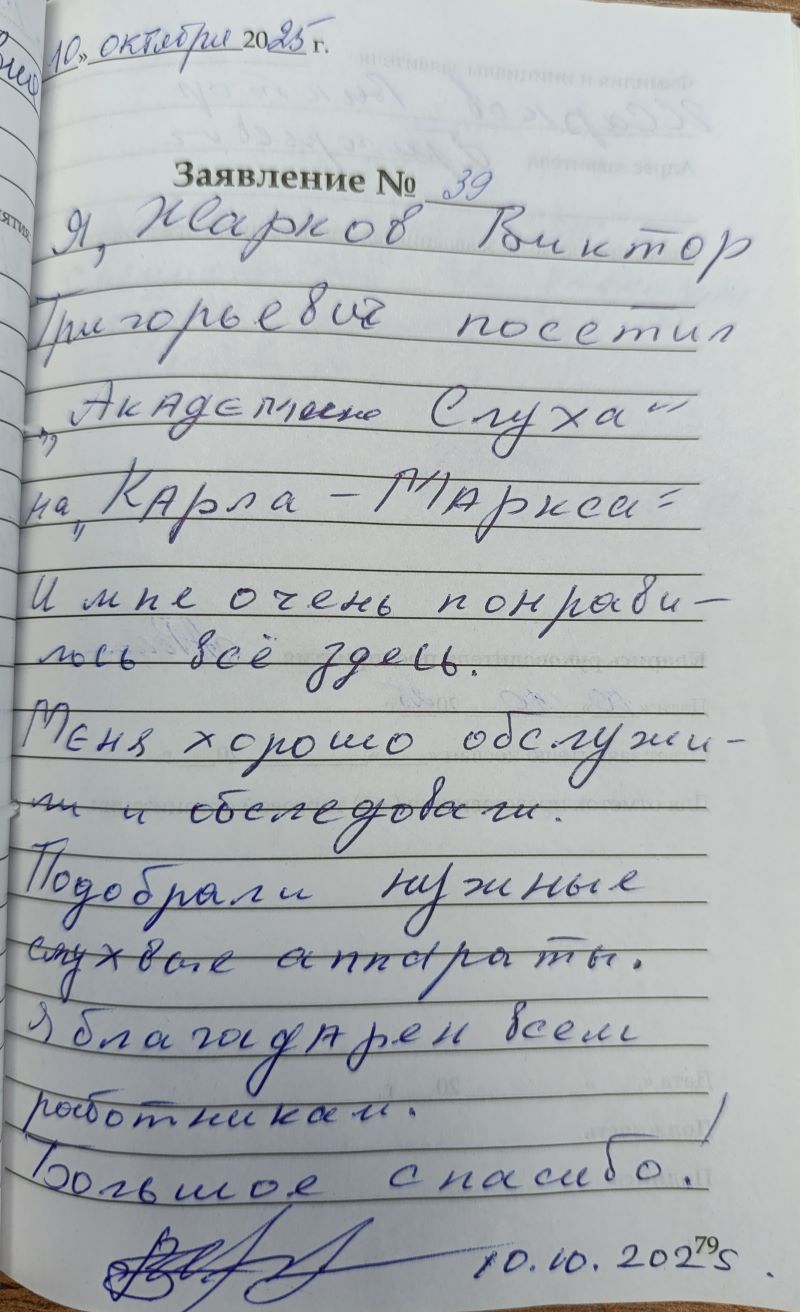 10» октября 2025 г.
Заявление № 39
Я, Жарков Виктор
Григорьевич посетил
„Академию Слуха"
на „Карла - Маркса"
И мне очень понрави-
лось всё здесь.
Меня хорошо обслужи-
ли и обследовали.
Подобрали нужные
слухвые аппараты.
Я благадарен всем
работникам.
Большое спасибо!
10.10.2025.
79